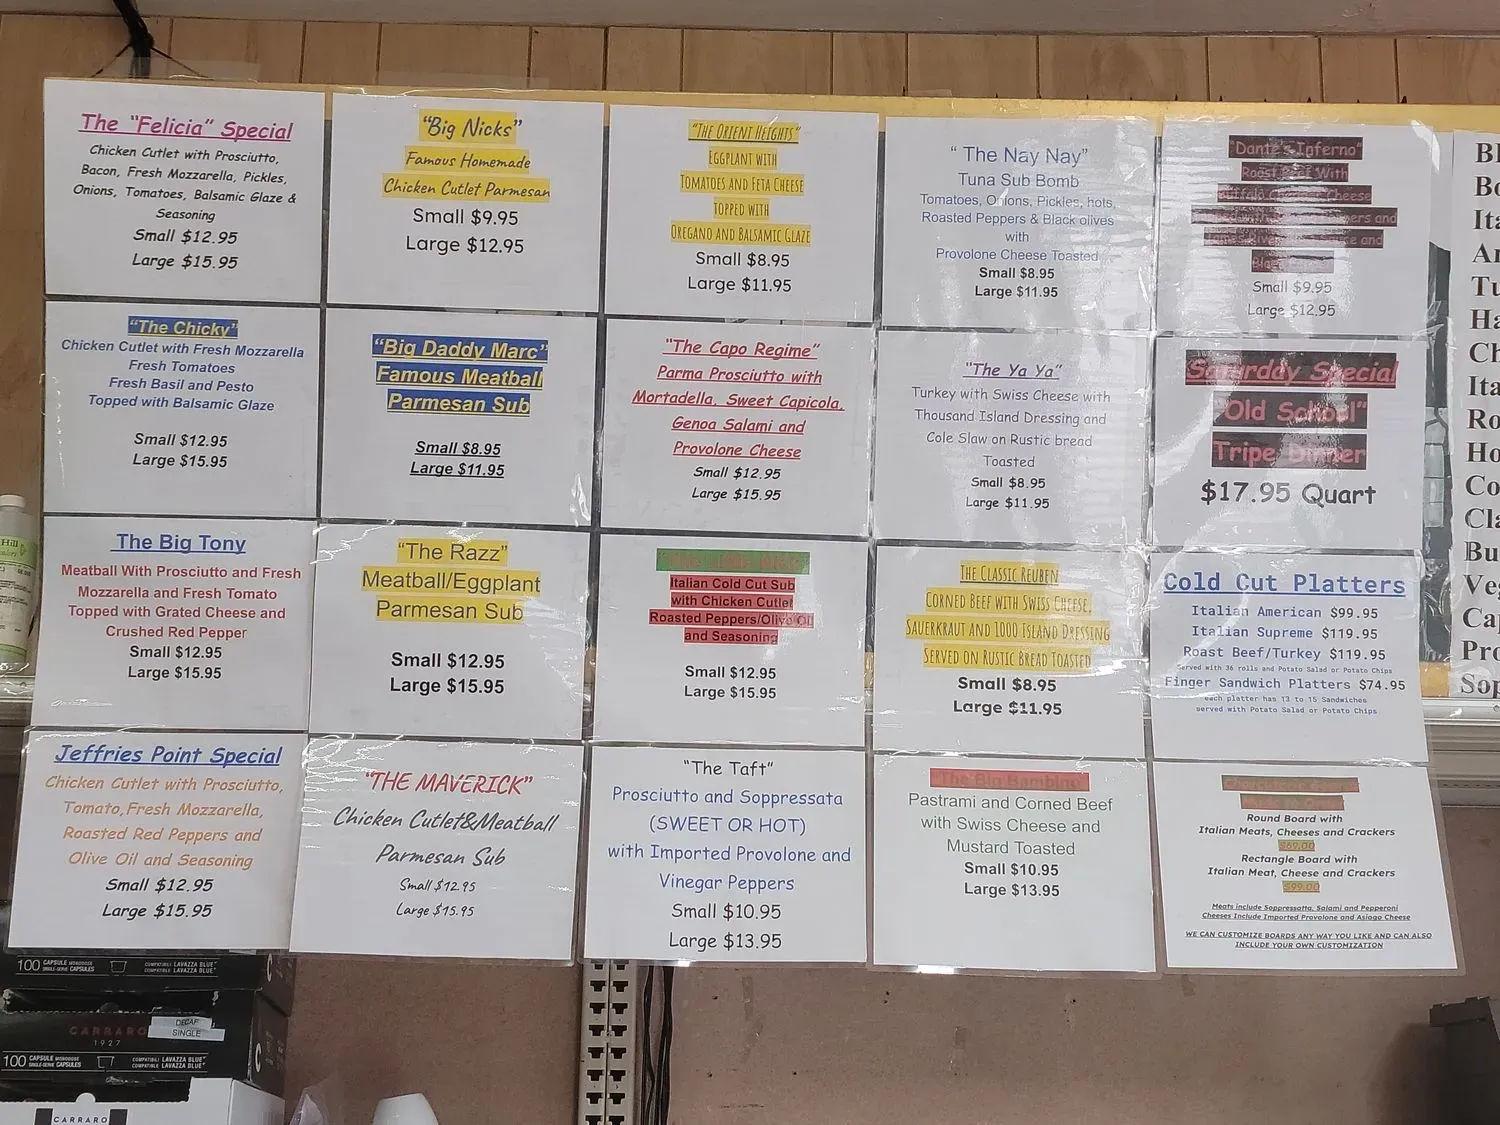 The "Felicia" Special
Chicken Cutlet with Prosciutto,
Bacon, Fresh Mozzarella, Pickles,
Onions, Tomatoes, Balsamic Glaze &
Seasoning
Small $12.95
Large $15.95
"Big Nicks"
Famous Homemade
Chicken Cutlet Parmesan
Small $9.95
Large $12.95
"The Orient Heights"
Eggplant with
Tomatoes and Feta Cheese
topped with
Oregano and Balsamic Glaze
Small $8.95
Large $11.95
" The Nay Nay"
Tuna Sub Bomb
Tomatoes, Onions, Pickles, hots,
Roasted Peppers & Black olives
with
Provolone Cheese Toasted
Small $8.95
Large $11.95
"Dante's Inferno"
Roast Beef With
Buffalo Cheese
Small $9.95
Large $12.95
"The Chicky"
Chicken Cutlet with Fresh Mozzarella
Fresh Tomatoes
Fresh Basil and Pesto
Topped with Balsamic Glaze
Small $12.95
Large $15.95
"Big Daddy Marc"
Famous Meatball
Parmesan Sub
Small $8.95
Large $11.95
"The Capo Regime"
Parma Prosciutto with
Mortadella, Sweet Capicola,
Genoa Salami and
Provolone Cheese
Small $12.95
Large $15.95
"The Ya Ya"
Turkey with Swiss Cheese with
Thousand Island Dressing and
Cole Slaw on Rustic bread
Toasted
Small $8.95
Large $11.95
Saturday Special
"Old School"
Tripe Dinner
$17.95 Quart
The Big Tony
Meatball With Prosciutto and Fresh
Mozzarella and Fresh Tomato
Topped with Grated Cheese and
Crushed Red Pepper
Small $12.95
Large $15.95
"The Razz"
Meatball/Eggplant
Parmesan Sub
Small $12.95
Large $15.95
Italian Cold Cut Sub
with Chicken Cutlet
Roasted Peppers/Olive Oil
and Seasoning
Small $12.95
Large $15.95
The Classic Reuben
Corned Beef with Swiss Cheese,
Sauerkraut and 1000 Island Dressing
Served on Rustic Bread Toasted
Small $8.95
Large $11.95
Cold Cut Platters
Italian American $99.95
Italian Supreme $119.95
Roast Beef/Turkey $119.95
Served with 36 rolls and Potato Salad or Potato Chips
Finger Sandwich Platters $74.95
each platter has 13 to 15 Sandwiches
served with Potato Salad or Potato Chips
Jeffries Point Special
Chicken Cutlet with Prosciutto,
Tomato,Fresh Mozzarella,
Roasted Red Peppers and
Olive Oil and Seasoning
Small $12.95
Large $15.95
"THE MAVERICK"
Chicken Cutlet&Meatball
Parmesan Sub
Small $12.95
Large $15.95
"The Taft"
Prosciutto and Soppressata
(SWEET OR HOT)
with Imported Provolone and
Vinegar Peppers
Small $10.95
Large $13.95
"The Big Bambino"
Pastrami and Corned Beef
with Swiss Cheese and
Mustard Toasted
Small $10.95
Large $13.95
Round Board with
Italian Meats, Cheeses and Crackers
$69.00
Rectangle Board with
Italian Meat, Cheese and Crackers
$99.00
Meats include Soppressatta, Salami and Pepperoni
Cheeses Include Imported Provolone and Asiago Cheese
WE CAN CUSTOMIZE BOARDS ANY WAY YOU LIKE AND CAN ALSO
INCLUDE YOUR OWN CUSTOMIZATION
100 CAPSULE MONODOSE
SINGLE-SERVE CAPSULES
COMPATIBILI LAVAZZA BLUE
COMPATIBLE LAVAZZA BLUE
CARRARO
1927
DECAF
SINGLE
100 CAPSULE MONODOSE
SINGLE-SERVE CAPSULES
COMPATIBILI LAVAZZA BLUE
COMPATIBLE LAVAZZA BLUE
CARRARO